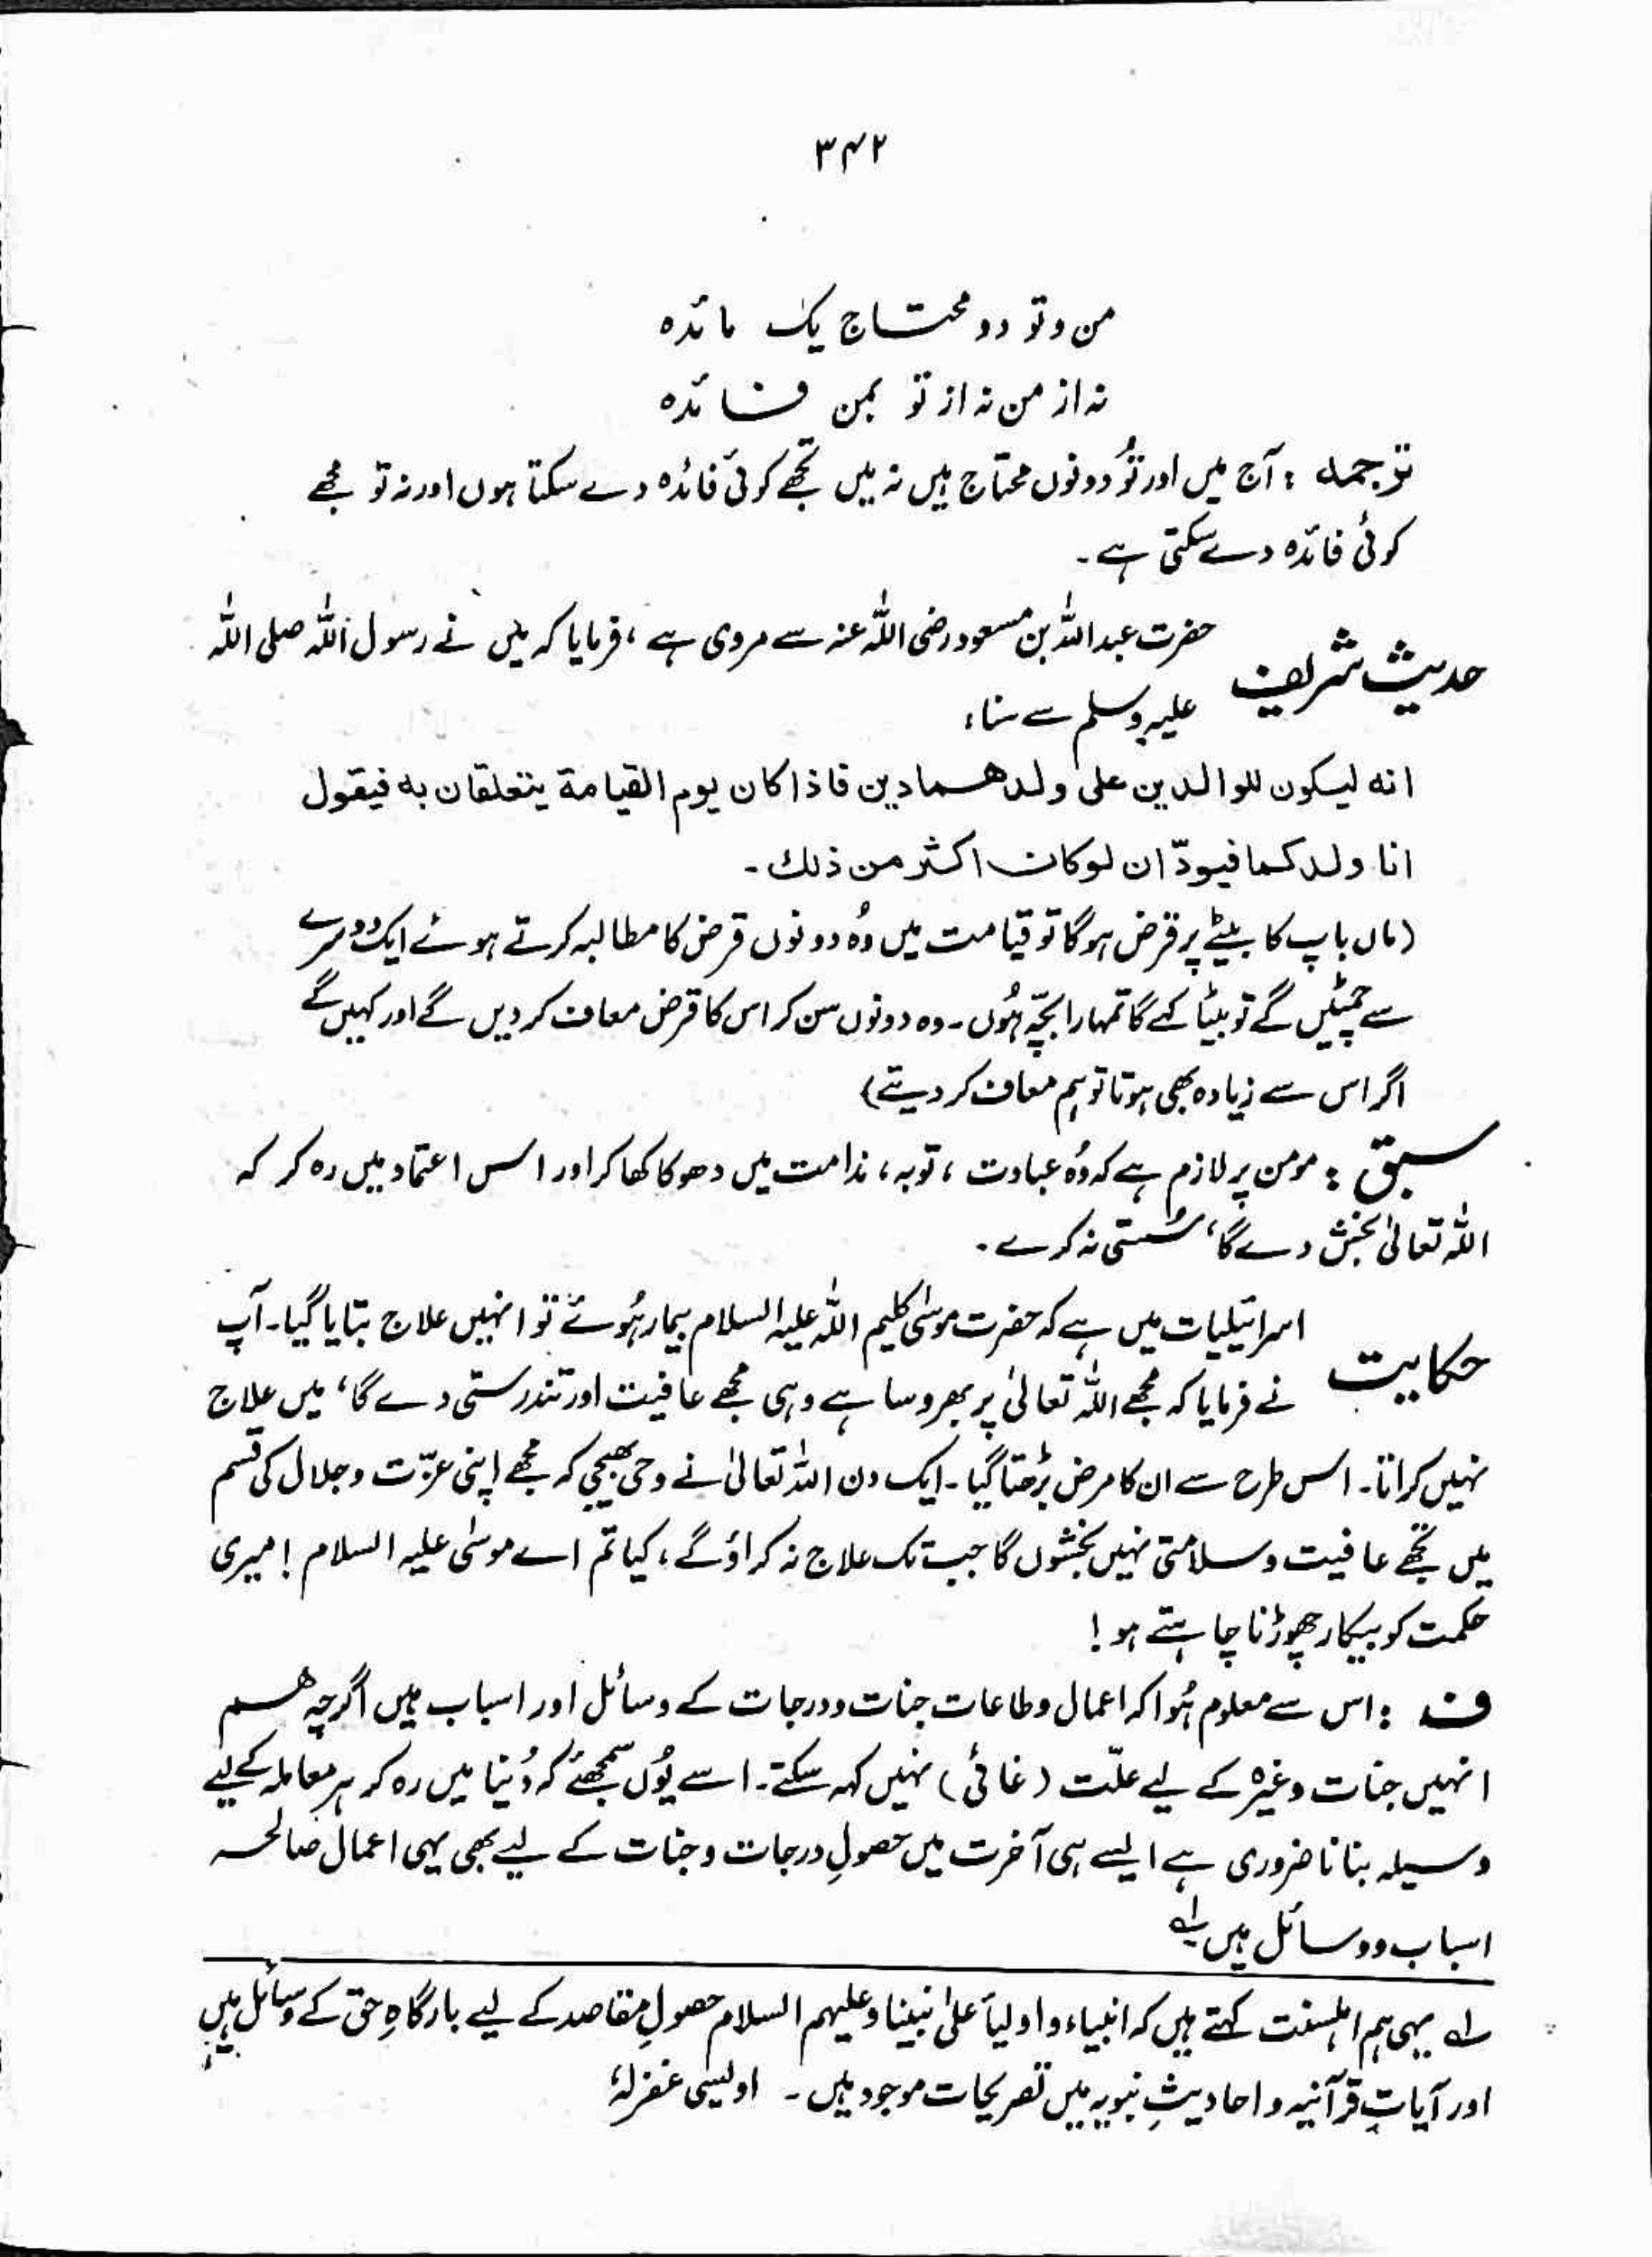 ۳۴۲
من و تو دو محتاج یک مائدہ
نہ از من نہ از تو بمن فائدہ
ترجمہ : آج میں اور تُو دونوں محتاج ہیں نہ میں تجھے کوئی فائدہ دے سکتا ہوں اور نہ تو مجھے
کوئی فائدہ دے سکتی ہے۔
حدیث شریف حضرت عبداللہ بن مسعود رضی اللہ عنہ سے مروی ہے، فرمایا کہ میں نے رسول اللہ صلی اللہ
علیہ وسلم سے سنا،
انه ليكون للوالدين على ولدهما دين فاذا كان يوم القيامة يتعلقان به فيقول
انا ولدكما فيودّان لو كان اكثر من ذلك۔
(ماں باپ کا بیٹے پر قرض ہوگا تو قیامت میں وُہ دونوں قرض کا مطالبہ کرتے ہوئے ایک دوسرے
سے چمٹیں گے تو بیٹا کہے گا تمہارا بچّہ ہُوں۔ وہ دونوں سن کر اس کا قرض معاف کر دیں گے اور کہیں گے
اگر اس سے زیادہ بھی ہوتا تو ہم معاف کر دیتے)
سبق : مومن پر لازم ہے کہ وُہ عبادت، توبہ، ندامت میں دھوکا کھا کر اور اس اعتماد میں رہ کر کہ
اللہ تعالیٰ بخش دے گا، سُستی نہ کرے۔
حکایت اسرائیلیات میں ہے کہ حضرت موسیٰ کلیم اللہ علیہ السلام بیمار ہُوئے تو انہیں علاج بتایا گیا۔ آپ
نے فرمایا کہ مجھے اللہ تعالیٰ پر بھروسا ہے وہی مجھے عافیت اور تندرستی دے گا، میں علاج
نہیں کراتا۔ اس طرح سے ان کا مرض بڑھتا گیا۔ ایک دن اللہ تعالیٰ نے وحی بھیجی کہ مجھے اپنی عزّت و جلال کی قسم
میں تجھے عافیت و سلامتی نہیں بخشوں گا جب تک علاج نہ کراؤ گے، کیا تم اے موسیٰ علیہ السلام ! میری
حکمت کو بیکار چھوڑنا چاہتے ہو !
ف : اس سے معلوم ہُوا کہ اعمال و طاعات جنات و درجات کے وسائل اور اسباب ہیں اگرچہ ہم
انہیں جنات وغیرہ کے لیے علّت (غائی) نہیں کہہ سکتے۔ اسے یُوں سمجھئے کہ دُنیا میں رہ کر ہر معاملہ کے لیے
وسیلہ بنانا ضروری ہے ایسے ہی آخرت میں حصولِ درجات و جنات کے لیے بھی یہی اعمال صالحہ
اسباب و وسائل ہیں لے
لے یہی ہم اہلسنت کہتے ہیں کہ انبیاء و اولیأ علیٰ نبینا وعلیہم السلام حصولِ مقاصد کے لیے بارگاہِ حق کے وسائل ہیں
اور آیاتِ قرآنیہ و احادیثِ نبویہ میں تصریحات موجود ہیں۔ اویسی غفرلہٗ